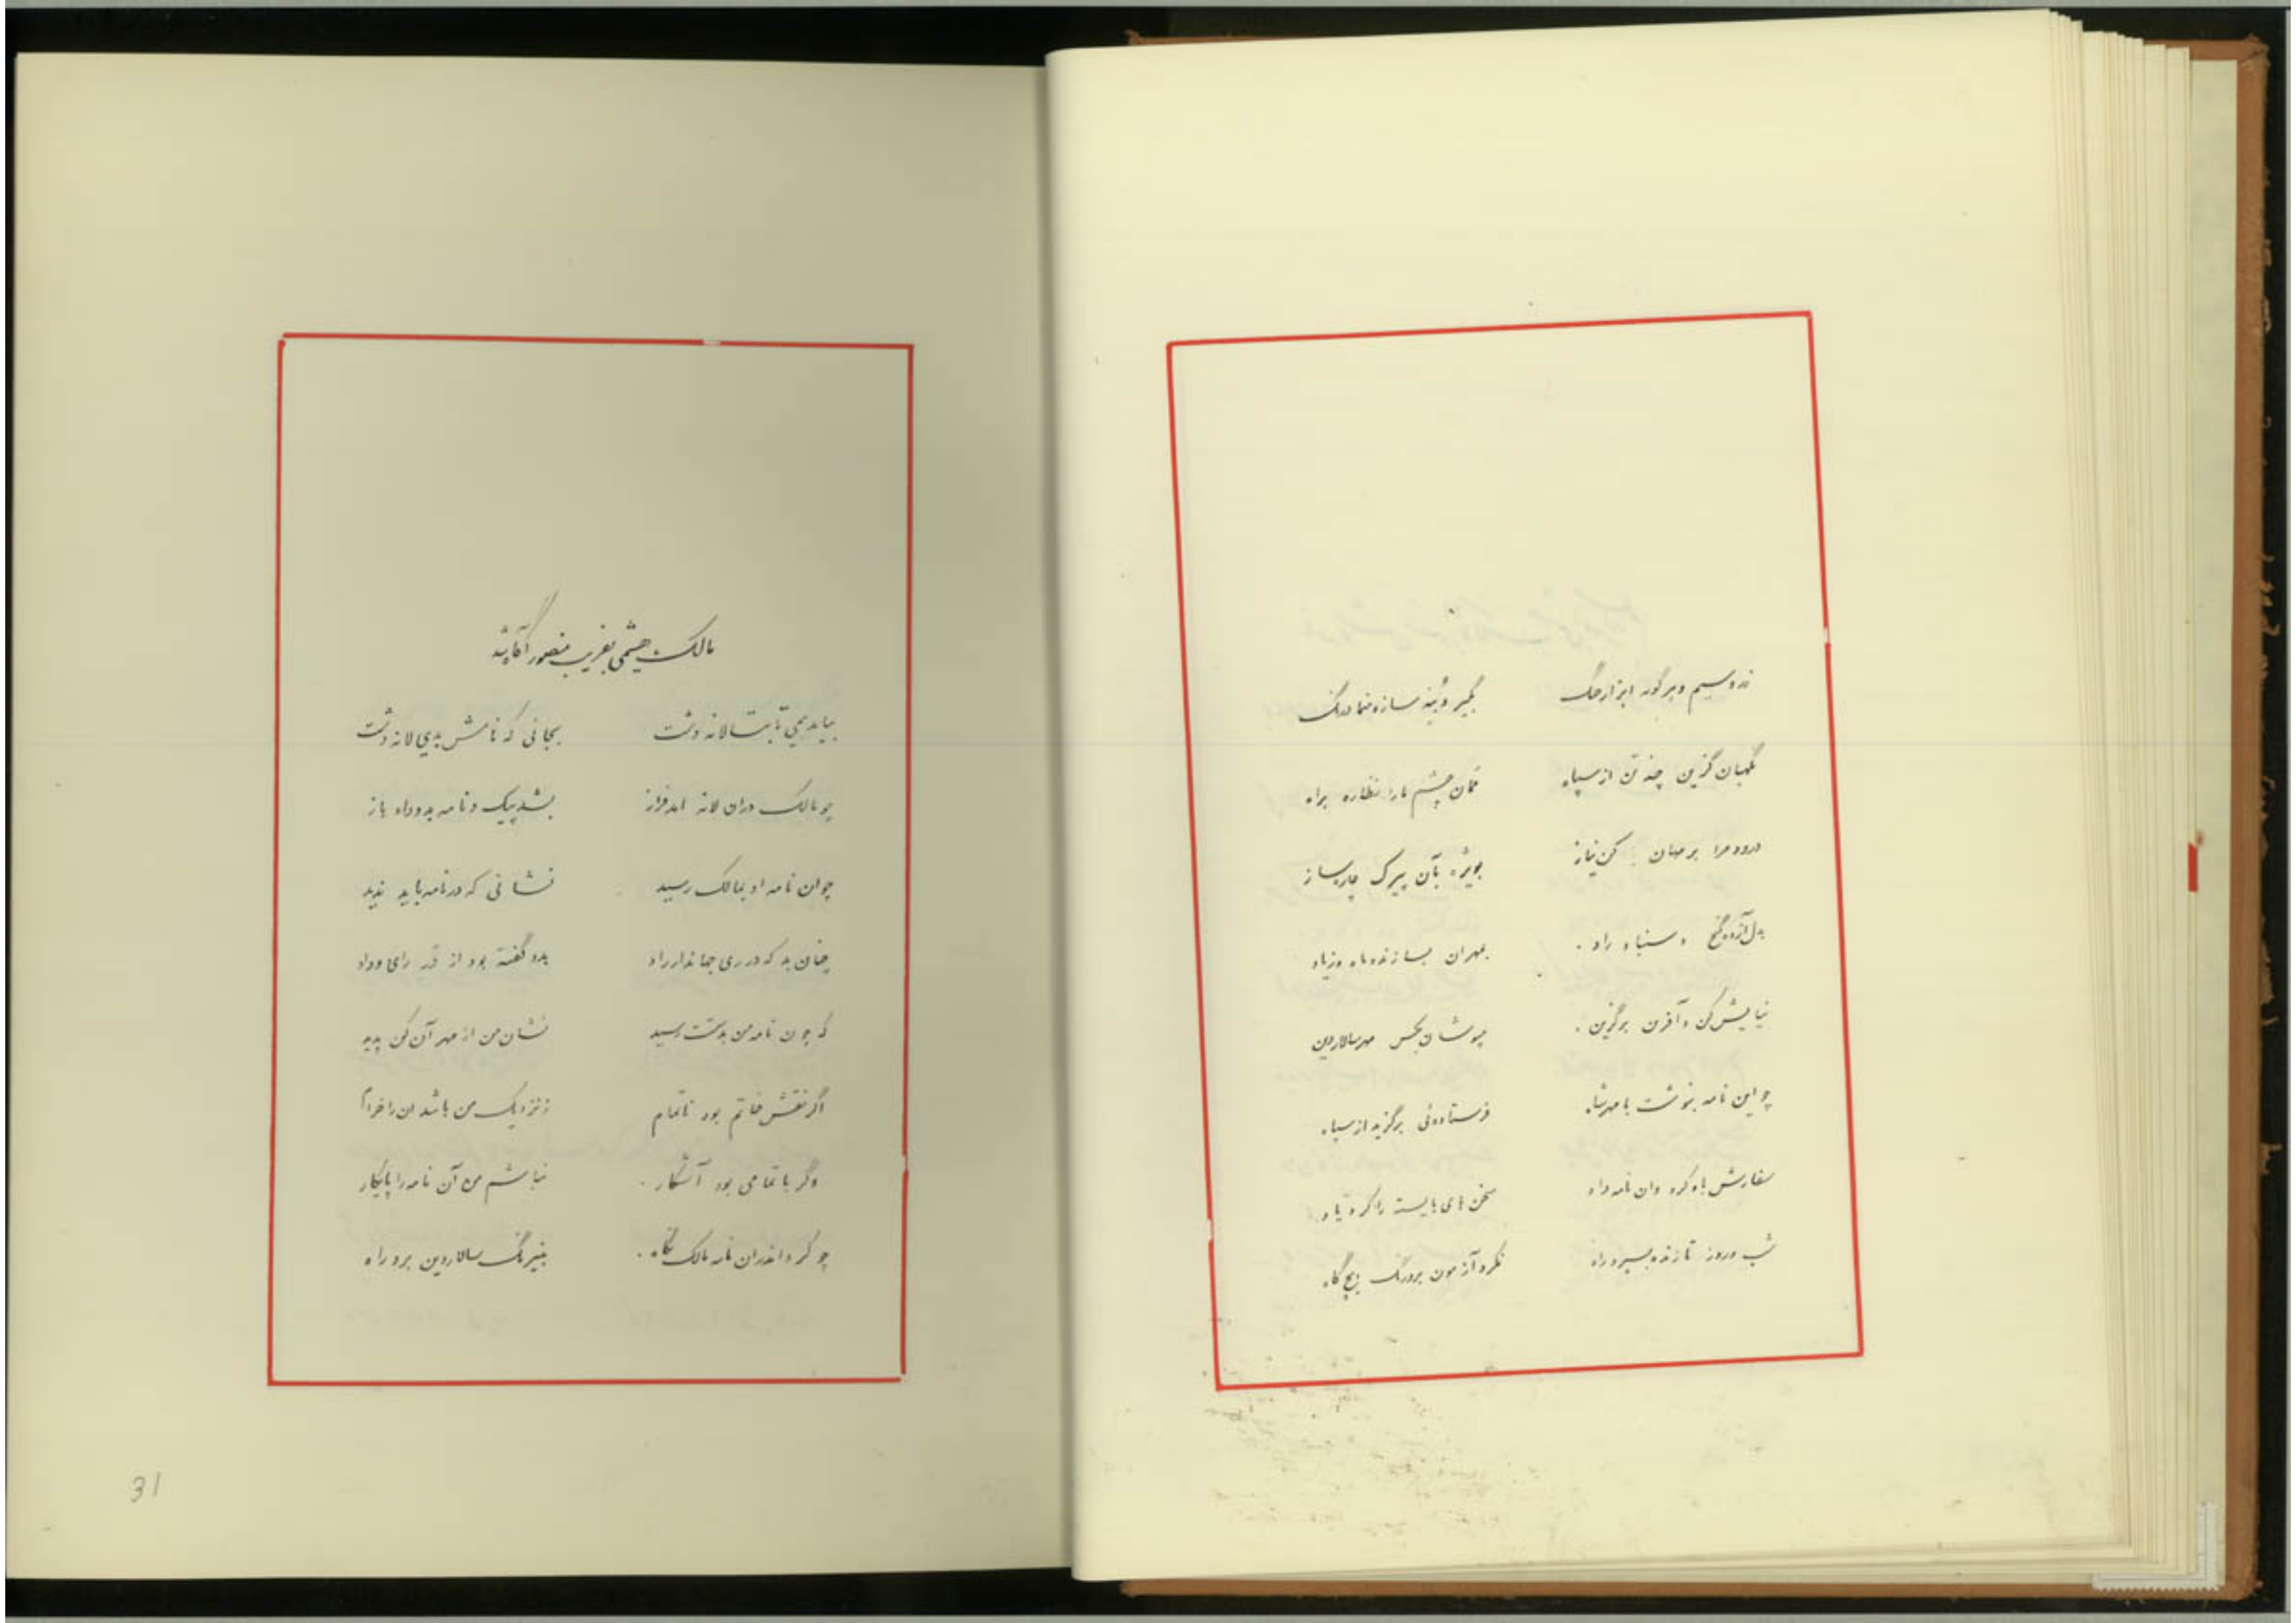 زر و سیم و هرگونه ابزار جنگ بگیر و بنه ساز ره بنما درنگ
نگهبان گزین چند تن از سپاه نظاره براه
درود مرا بر مهان کن نیاز بویژه بآن پیرک چاره‌ساز
و سنباد راد
نیایش کن و آفرین برگزین مپوشان بکس مهر سالار دین
چو این نامه بنوشت با مهر شاه فرستاده‌ئی برگزید از سپاه
سفارش باو کرد وان نامه داد سخن های بایسته را کرد یاد
شب و روز تازنده بسپرد راه نکرد آزمون بر درنگ هیچ گاه
مالک هیثمی بفریب منصور آگاه شد
بیامد همی تا بتالانه دشت بجائی که نامش بدی لانه دشت
چو مالک دران لانه آمد فراز بشد پیک و نامه بدو داد باز
چوان نامه او بمالک رسید نشانی که در نامه باید ندید
چنان بد که در ری جهاندار راد بدو گفته بود از در رای و داد
که چون نامه من بدستت رسید نشان من از مهر آن کن پدید
اگر نقش خاتم بود ناتمام زنزدیک من باشد ان را خرام
وگر با تمامی بود آشکار نباشم من آن نامه را پایکار
چو کرد اندران نامه مالک نگاه بنیرنگ سالار دین برد راه
31